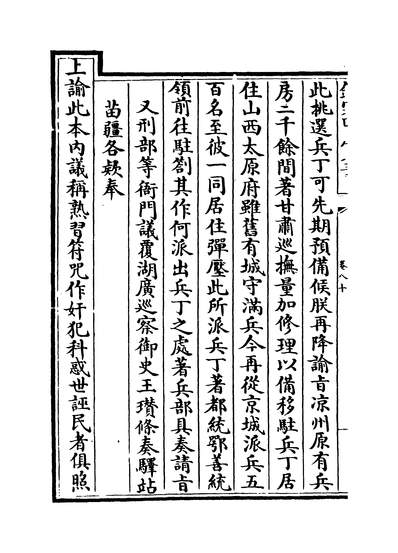 此挑選兵丁可先期預備候朕再降諭旨凉州原有兵
房二千餘間著甘肅巡撫量加修理以備移駐兵丁居
住山西太原府雖舊有城守滿兵今再從京城派兵五
百名至彼一同居住彈壓此所派兵丁著都統鄂善統
領前往駐劄其作何派出兵丁之處著兵部具奏請旨
又刑部等衙門議覆湖廣巡察御史王瓚條奏驛站
苗疆各欵奉
上諭此本內議稱熟習符咒作奸犯科惑世誣民者俱照
卷八十